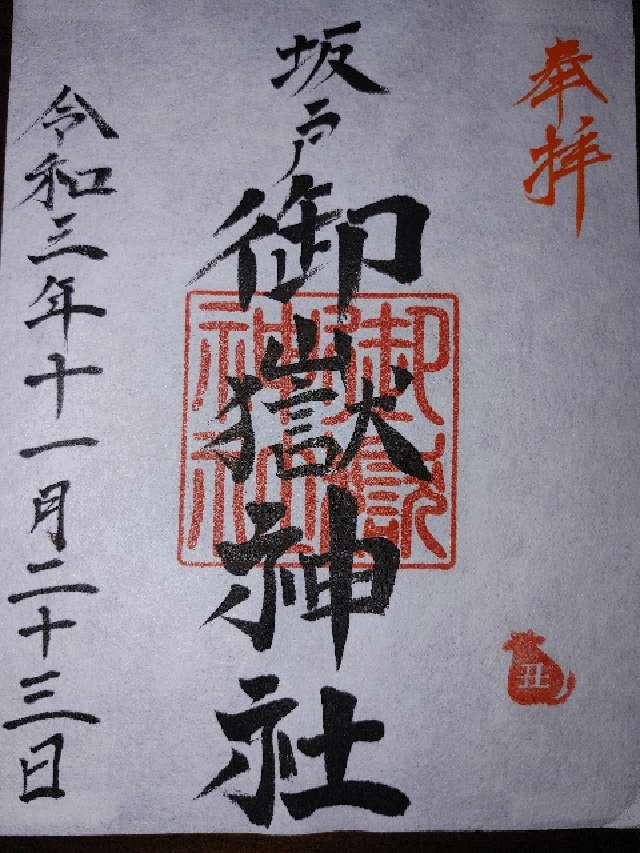 奉拝
坂戸
御嶽神社
令和三年十一月二十三日
丑